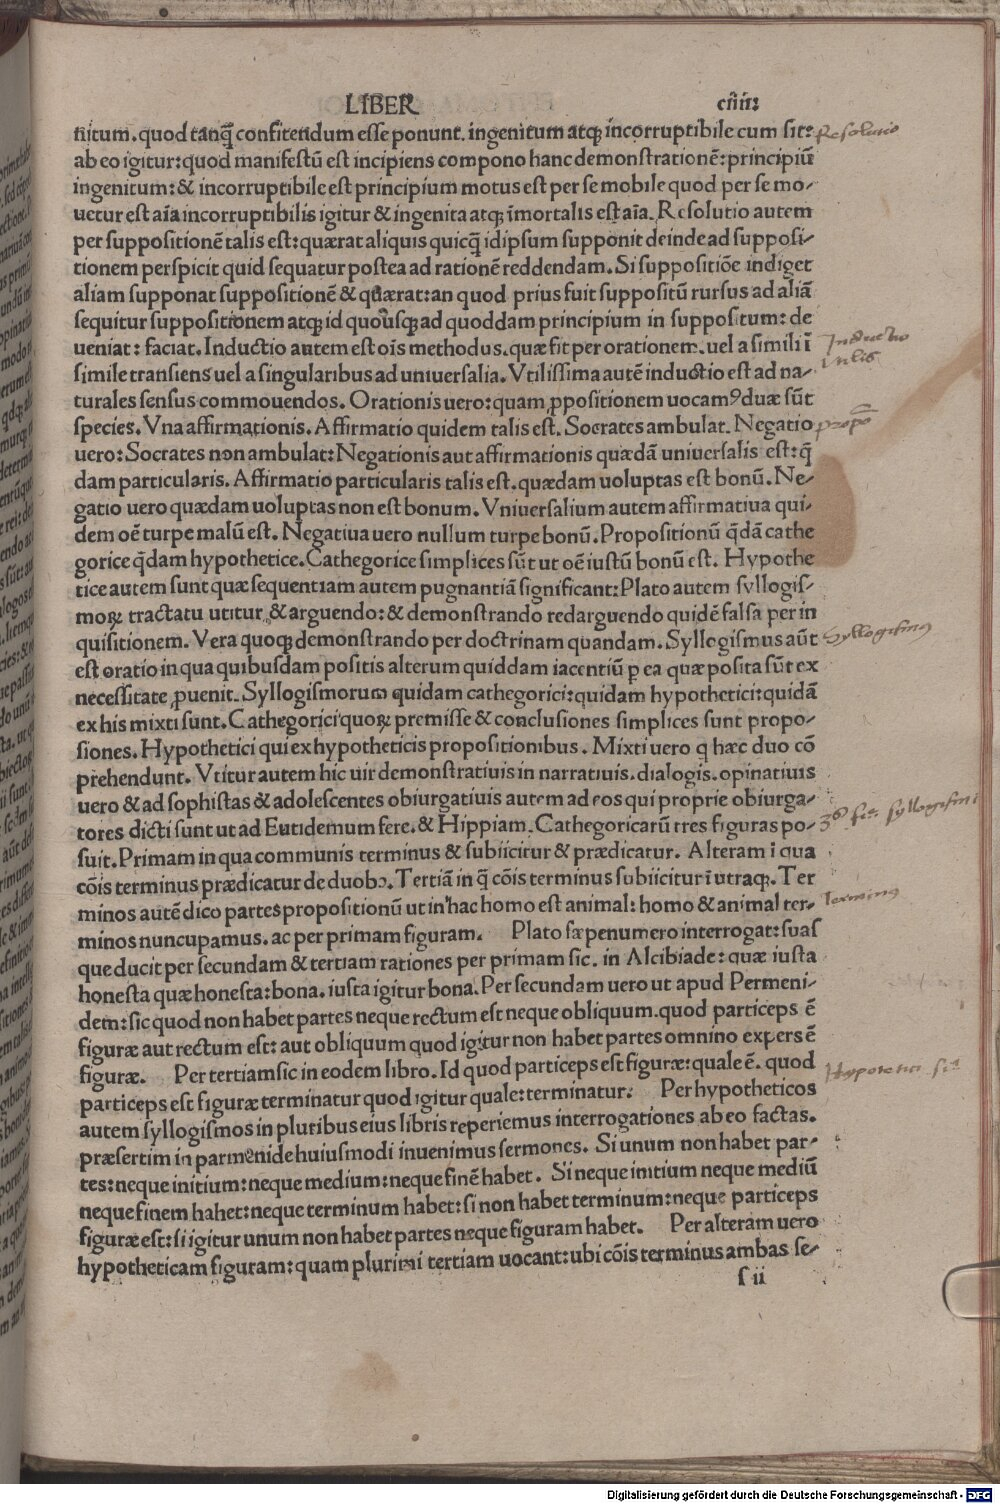 LIBER
nitum. quod tanq̃ confitendum esse ponunt. ingenitum atqꝫ incorruptibile cum sit:
Resolutio
ab eo igitur: quod manifestũ est incipiens compono hanc demonstrationẽ: principiũ
ingenitum: & incorruptibile est principium motus est per se mobile quod per se mo/
uetur est aĩa incorruptibilis igitur & ingenita atqꝫ ĩmortalis est aĩa. Resolutio autem
per suppositionẽ talis est: quærat aliquis quicq̃ id ipsum supponit deinde ad supposi/
tionem perspicit quid sequatur postea ad rationẽ reddendam. Si suppositiõe indiget
aliam supponat suppositionẽ & quærat: an quod prius fuit suppositũ rursus ad aliã
sequitur suppositionem atqꝫ id quousqꝫ ad quoddam principium in suppositum: de
ueniat: faciat. Inductio autem est oĩs methodus. quæ fit per orationem. uel a simili ĩ
Inductio
simile transiens uel a singularibus ad uniuersalia. Vtilissima autẽ inductio est ad na/
turales sensus commouendos. Orationis uero: quam ꝓpositionem uocamꝰ duæ sũt
species. Vna affirmationis. Affirmatio quidem talis est. Socrates ambulat. Negatio
uero: Socrates non ambulat: Negationis aut affirmationis quædã uniuersalis est: q̃
dam particularis. Affirmatio particularis talis est. quædam uoluptas est bonũ. Ne/
gatio uero quædam uoluptas non est bonum. Vniuersalium autem affirmatiua qui/
dem oẽ turpe malũ est. Negatiua uero nullum turpe bonũ. Propositionũ q̃dã cathe
gorice q̃dam hypothetice. Cathegorice simplices sũt ut oẽ iustũ bonũ est. Hypothe
tice autem sunt quæ sequentiam autem pugnantiã significant: Plato autem syllogis/
moꝝ tractatu utitur & arguendo: & demonstrando redarguendo quidẽ falsa per in
quisitionem. Vera quoqꝫ demonstrando per doctrinam quandam. Syllogismus aũt
Syllogismus
est oratio in qua quibusdam positis alterum quiddam iacentiũ ꝑ ea quæ posita sũt ex
necessitate ꝓuenit. Syllogismorum quidam cathegorici: quidam hypothetici: quidã
ex his mixti sunt. Cathegorici quoꝝ premisse & conclusiones simplices sunt propo/
siones. Hypothetici qui ex hypotheticis propositionibus. Mixti uero q hæc duo cõ
prehendunt. Vtitur autem hic uir demonstratiuis in narratiuis. dialogis. opinatiuis
uero & ad sophistas & adolescentes obiurgatiuis autem ad eos qui proprie obiurga/
tores dicti sunt ut ad Eutidemum fere. & Hippiam. Cathegoricarũ tres figuras po/
syllogismi
suit. Primam in qua communis terminus & subiicitur & prædicatur. Alteram ĩ qua
cõis terminus prædicatur de duobꝫ. Tertiã in q̃ cõis terminus subiicitur ĩ utraqꝫ. Ter
minos autẽ dico partes propositionũ ut in hac homo est animal: homo & animal ter/
Terminus
minos nuncupamus. ac per primam figuram. Plato sæpenumero interrogat: suas
que ducit per secundam & tertiam rationes per primam sic. in Alcibiade: quæ iusta
honesta quæ honesta: bona. iusta igitur bona. Per secundam uero ut apud Permeni/
dem: sic quod non habet partes neque rectum est neque obliquum. quod particeps ẽ
figuræ aut rectum est: aut obliquum quod igitur non habet partes omnino expers ẽ
figuræ. Per tertiam sic in eodem libro. Id quod particeps est figuræ: quale ẽ. quod
particeps est figuræ terminatur quod igitur quale: terminatur. Per hypotheticos
autem syllogismos in pluribus eius libris reperiemus interrogationes ab eo factas.
præsertim in parmenide huiusmodi inuenimus sermones. Si unum non habet par/
tes: neque initium: neque medium: neque finẽ habet. Si neque initium neque mediũ
neque finem hahet: neque terminum habet: si non habet terminum: neque particeps
figuræ est: si igitur unum non habet partes neque figuram habet. Per alteram uero
hypotheticam figuram: quam plurimi tertiam uocant: ubi cõis terminus ambas se/
s ii
Digitalisierung gefördert durch die Deutsche Forschungsgemeinschaft - DFG